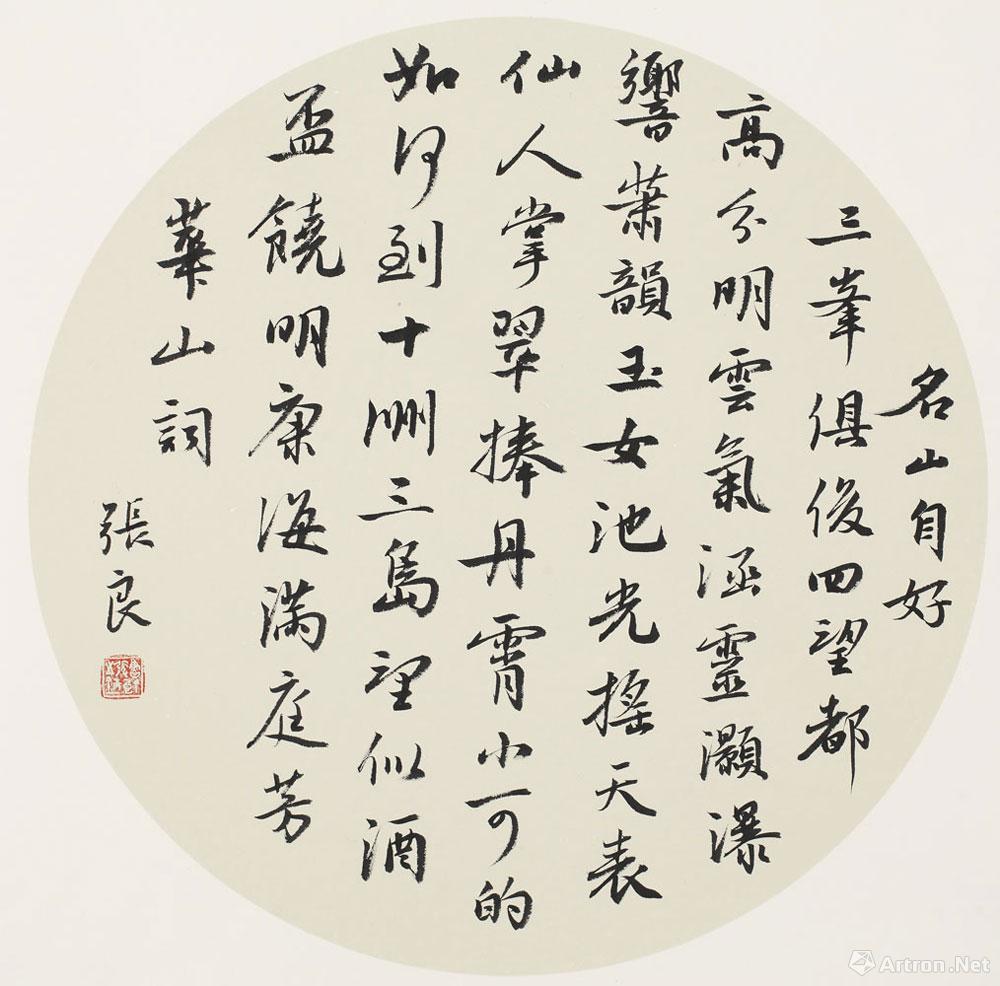 名山自好
三峯俱俊四望都
高分明雲氣涵靈灝瀑
響蕭韻玉女池光搖天表
仙人掌翠捧丹霄小可的
如何到十洲三島望似酒
盃饒明康海滿庭芳
華山詞
張良
Artron.Net